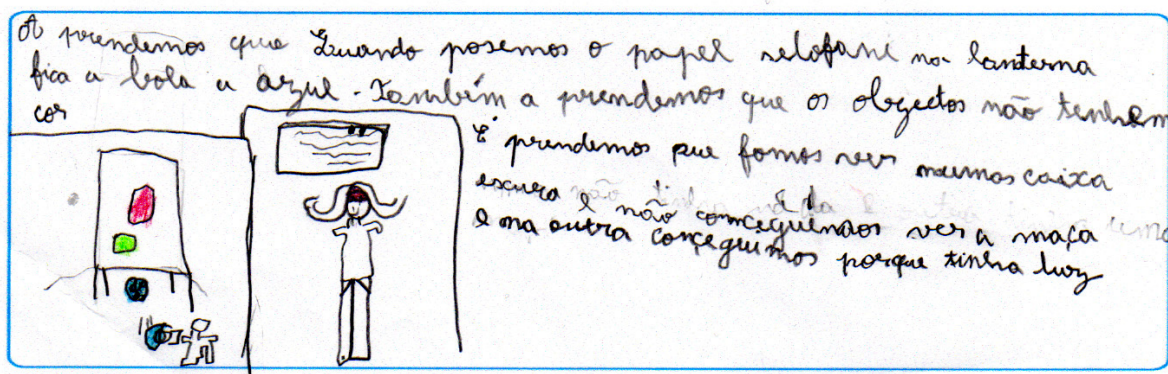 A prendemos que Quando posemos o papel selofane na lanterna
fica a bola a azul. Também a prendemos que os objectos não tenhem
cor
E prendemos que fomos ver numas caixa
escura e não conceguimos ver a maça
e na outra conçeguimos porque tinha luz